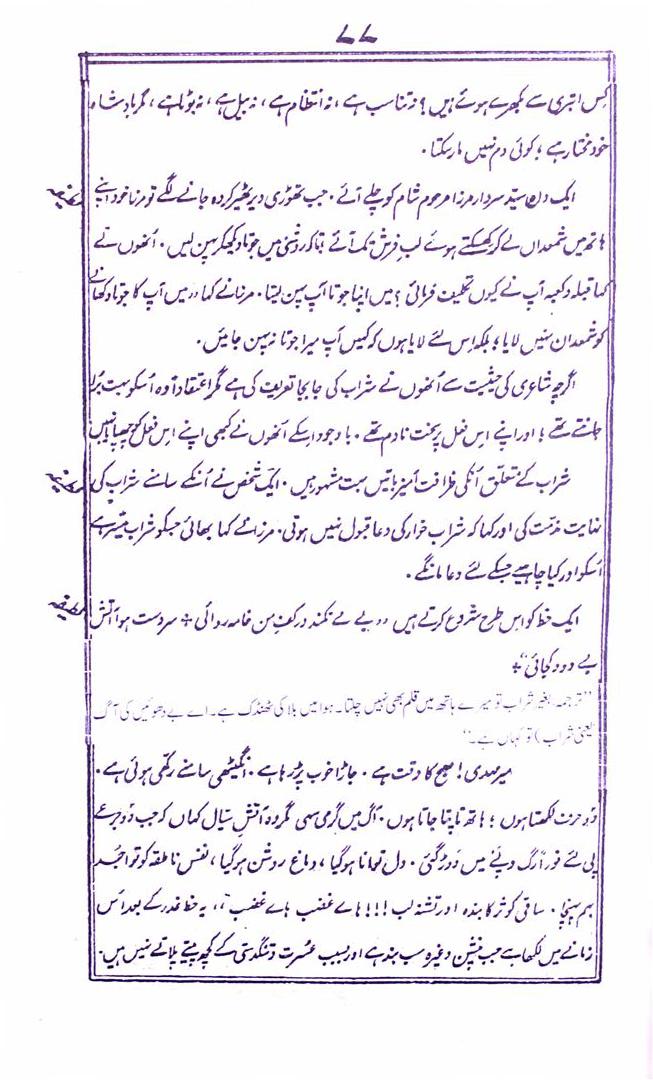 ۷۷
کس ابتری سے بکھرے ہوئے ہیں؟ نہ تناسب ہے، نہ انتظام ہے، نہ بیل ہے، نہ بوٹا ہے، مگر بادشاہ
خود مختار ہے؛ کوئی دم نہیں مار سکتا۔
ایک دن سیّد سردار مرزا مرحوم شام کو چلے آئے۔ جب تھوڑی دیر ٹھیر کر وہ جانے لگے تو مرزا خود اپنے
لطیفہ
ہاتھ میں شمعدان لے کر کھسکتے ہوئے لبِ فرش تک آئے تاکہ روشنی میں جوتا دیکھکر پہن لیں۔ اُنھوں نے
کہا قبلہ و کعبہ آپ نے کیوں تکلیف فرمائی؟ میں اپنا جوتا آپ پہن لیتا۔ مرزا نے کہا "میں آپ کا جوتا دکھانے
کو شمعدان نہیں لایا؛ بلکہ اس لئے لایا ہوں کہ کہیں آپ میرا جوتا نہ پہن جائیں۔
اگرچہ شاعری کی حیثیت سے اُنھوں نے شراب کی جابجا تعریف کی ہے مگر اعتقاداً وہ اُسکو بہت بُرا
جانتے تھے؛ اور اپنے اس فعل پر سخت نادم تھے۔ باوجود اسکے اُنھوں نے کبھی اپنے اس فعل کو چھپایا نہیں
شراب کے متعلق اُنکی ظرافت آمیز باتیں بہت مشہور ہیں۔ ایک شخص نے اُنکے سامنے شراب کی
لطیفہ
نہایت مذمّت کی اور کہا کہ شراب خوار کی دعا قبول نہیں ہوتی۔ مرزا نے کہا بھائی جسکو شراب میسّر ہے
اُسکو اور کیا چاہیے جسکے لئے دعا مانگے۔
ایک خط کو اس طرح شروع کرتے ہیں "بے مے نکند در کفِ من خامہ روائی ÷ سردست ہوا آتشِ
لطیفہ
بے دود کجائی" ÷
"ترجمہ بغیر شراب تو میرے ہاتھ میں قلم بھی نہیں چلتا۔ ہوا میں بلا کی ٹھنڈک ہے۔ اے بے دھوئیں کی آگ
(یعنی شراب) تو کہاں ہے۔"
میر مہدی! صبح کا وقت ہے۔ جاڑا خوب پڑ رہا ہے۔ انگیٹھی سامنے رکھی ہوئی ہے۔
دو حرف لکھتا ہوں؛ ہاتھ تاپتا جاتا ہوں۔ آگ میں گرمی سہی مگر وہ آتشِ سیّال کہاں کہ جب دو جرعے
پی لئے فوراً رگ و پئے میں دوڑ گئی۔ دل توانا ہو گیا، دماغ روشن ہو گیا، نفسِ ناطقہ کو تواجُد
بہم پہنچا۔ ساقیِ کوثر کا بندہ اور تشنہ لب!!! ہائے غضب ہائے غضب"۔ یہ خط غدر کے بعد اُس
زمانے میں لکھا ہے جب پنشن وغیرہ سب بند ہے اور بسبب عُسرت و تنگدستی کے کچھ پیتے پلاتے نہیں ہیں۔